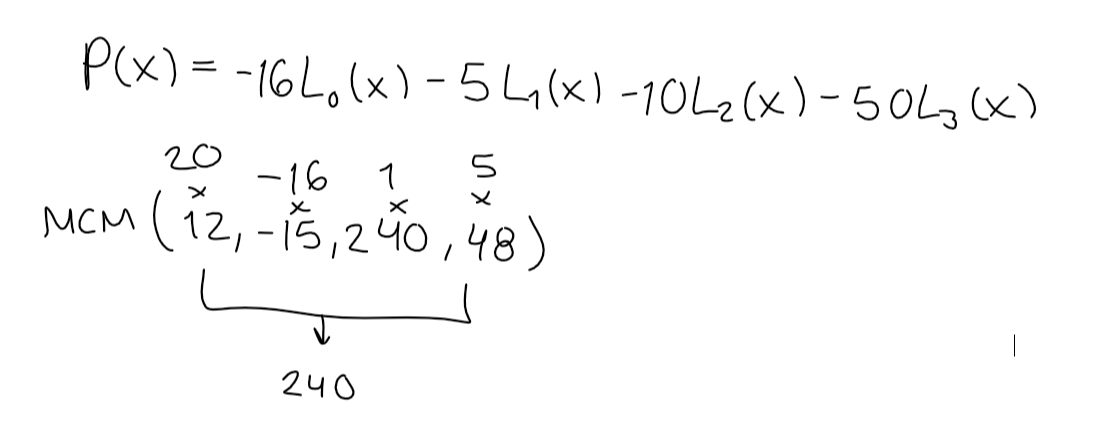 P(x) = -16L₀(x) - 5L₁(x) - 10L₂(x) - 50L₃(x)
20 -16 1 5
x x x x
MCM (12, -15, 240, 48)
240